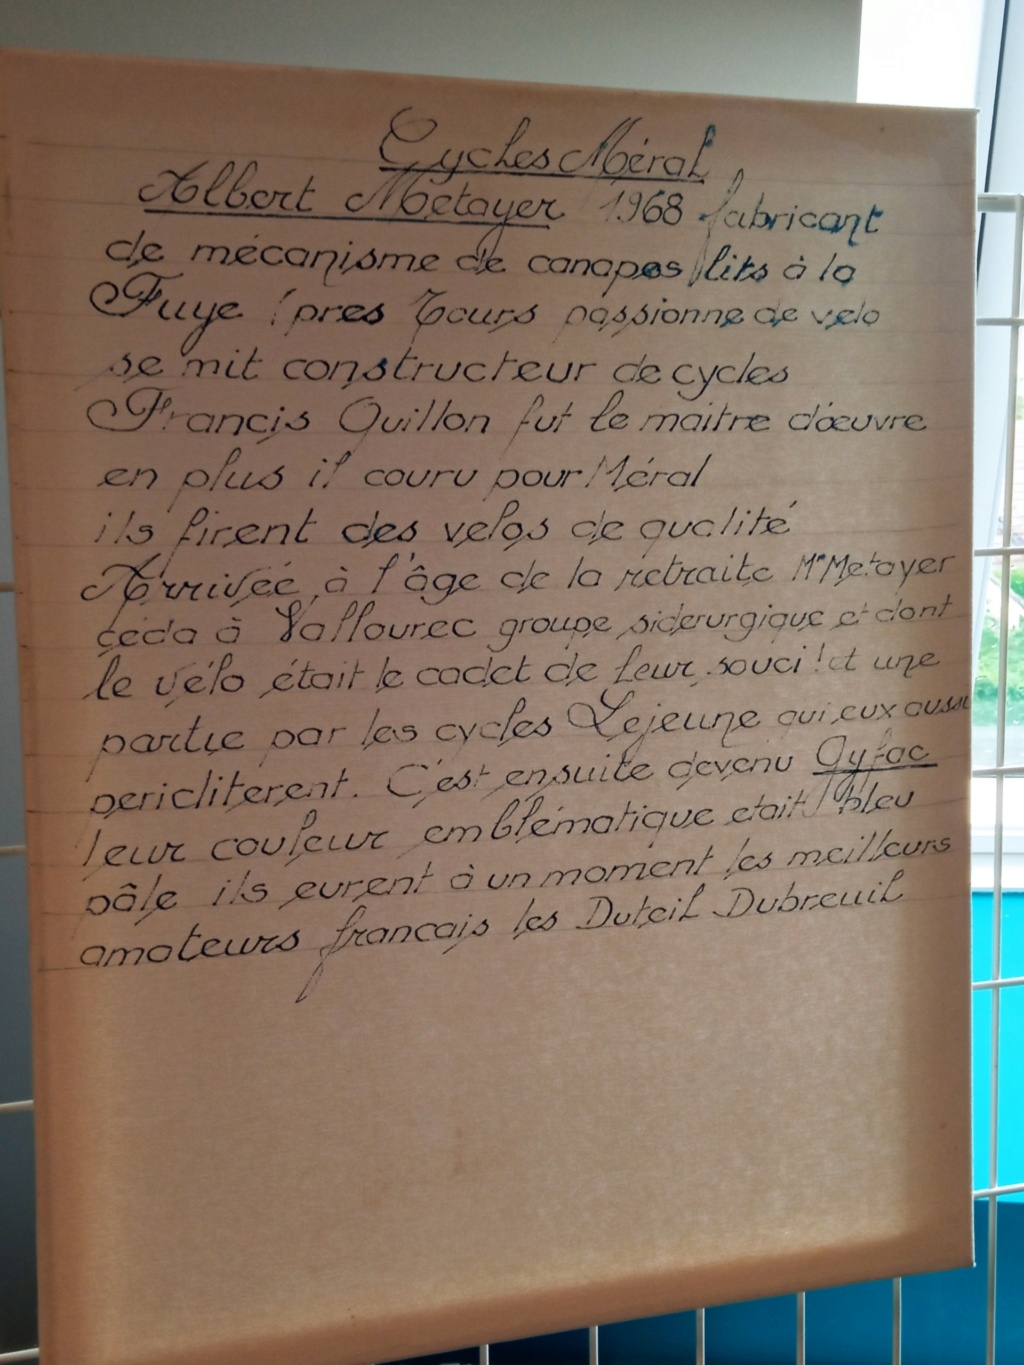 Cycles Méral
Albert Métayer 1968 fabricant
de mécanisme de canapes lits à la
Fuye (pres Tours passionne de velo
se mit constructeur de cycles
Francis Quillon fut le maitre d'œuvre
en plus il couru pour Méral
ils firent des velos de qualité
Arrivée à l'âge de la retraite Mr Metayer
ceda à Vallourec groupe siderurgique et dont
le vélo était le cadet de leur souci ! et une
partie par les cycles Lejeune qui eux aussi
pericliterent. C'est ensuite devenu Cyfac
leur couleur emblématique etait bleu
pâle ils eurent à un moment les meilleurs
amateurs francais les Duteil Dubreuil